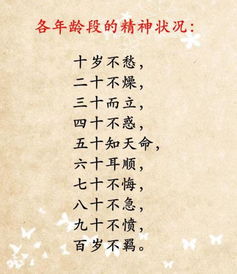 各年龄段的精神状况：
十岁不愁，
二十不燥，
三十而立，
四十不惑，
五十知天命，
六十耳顺，
七十不悔，
八十不急，
九十不愤，
百岁不羁。